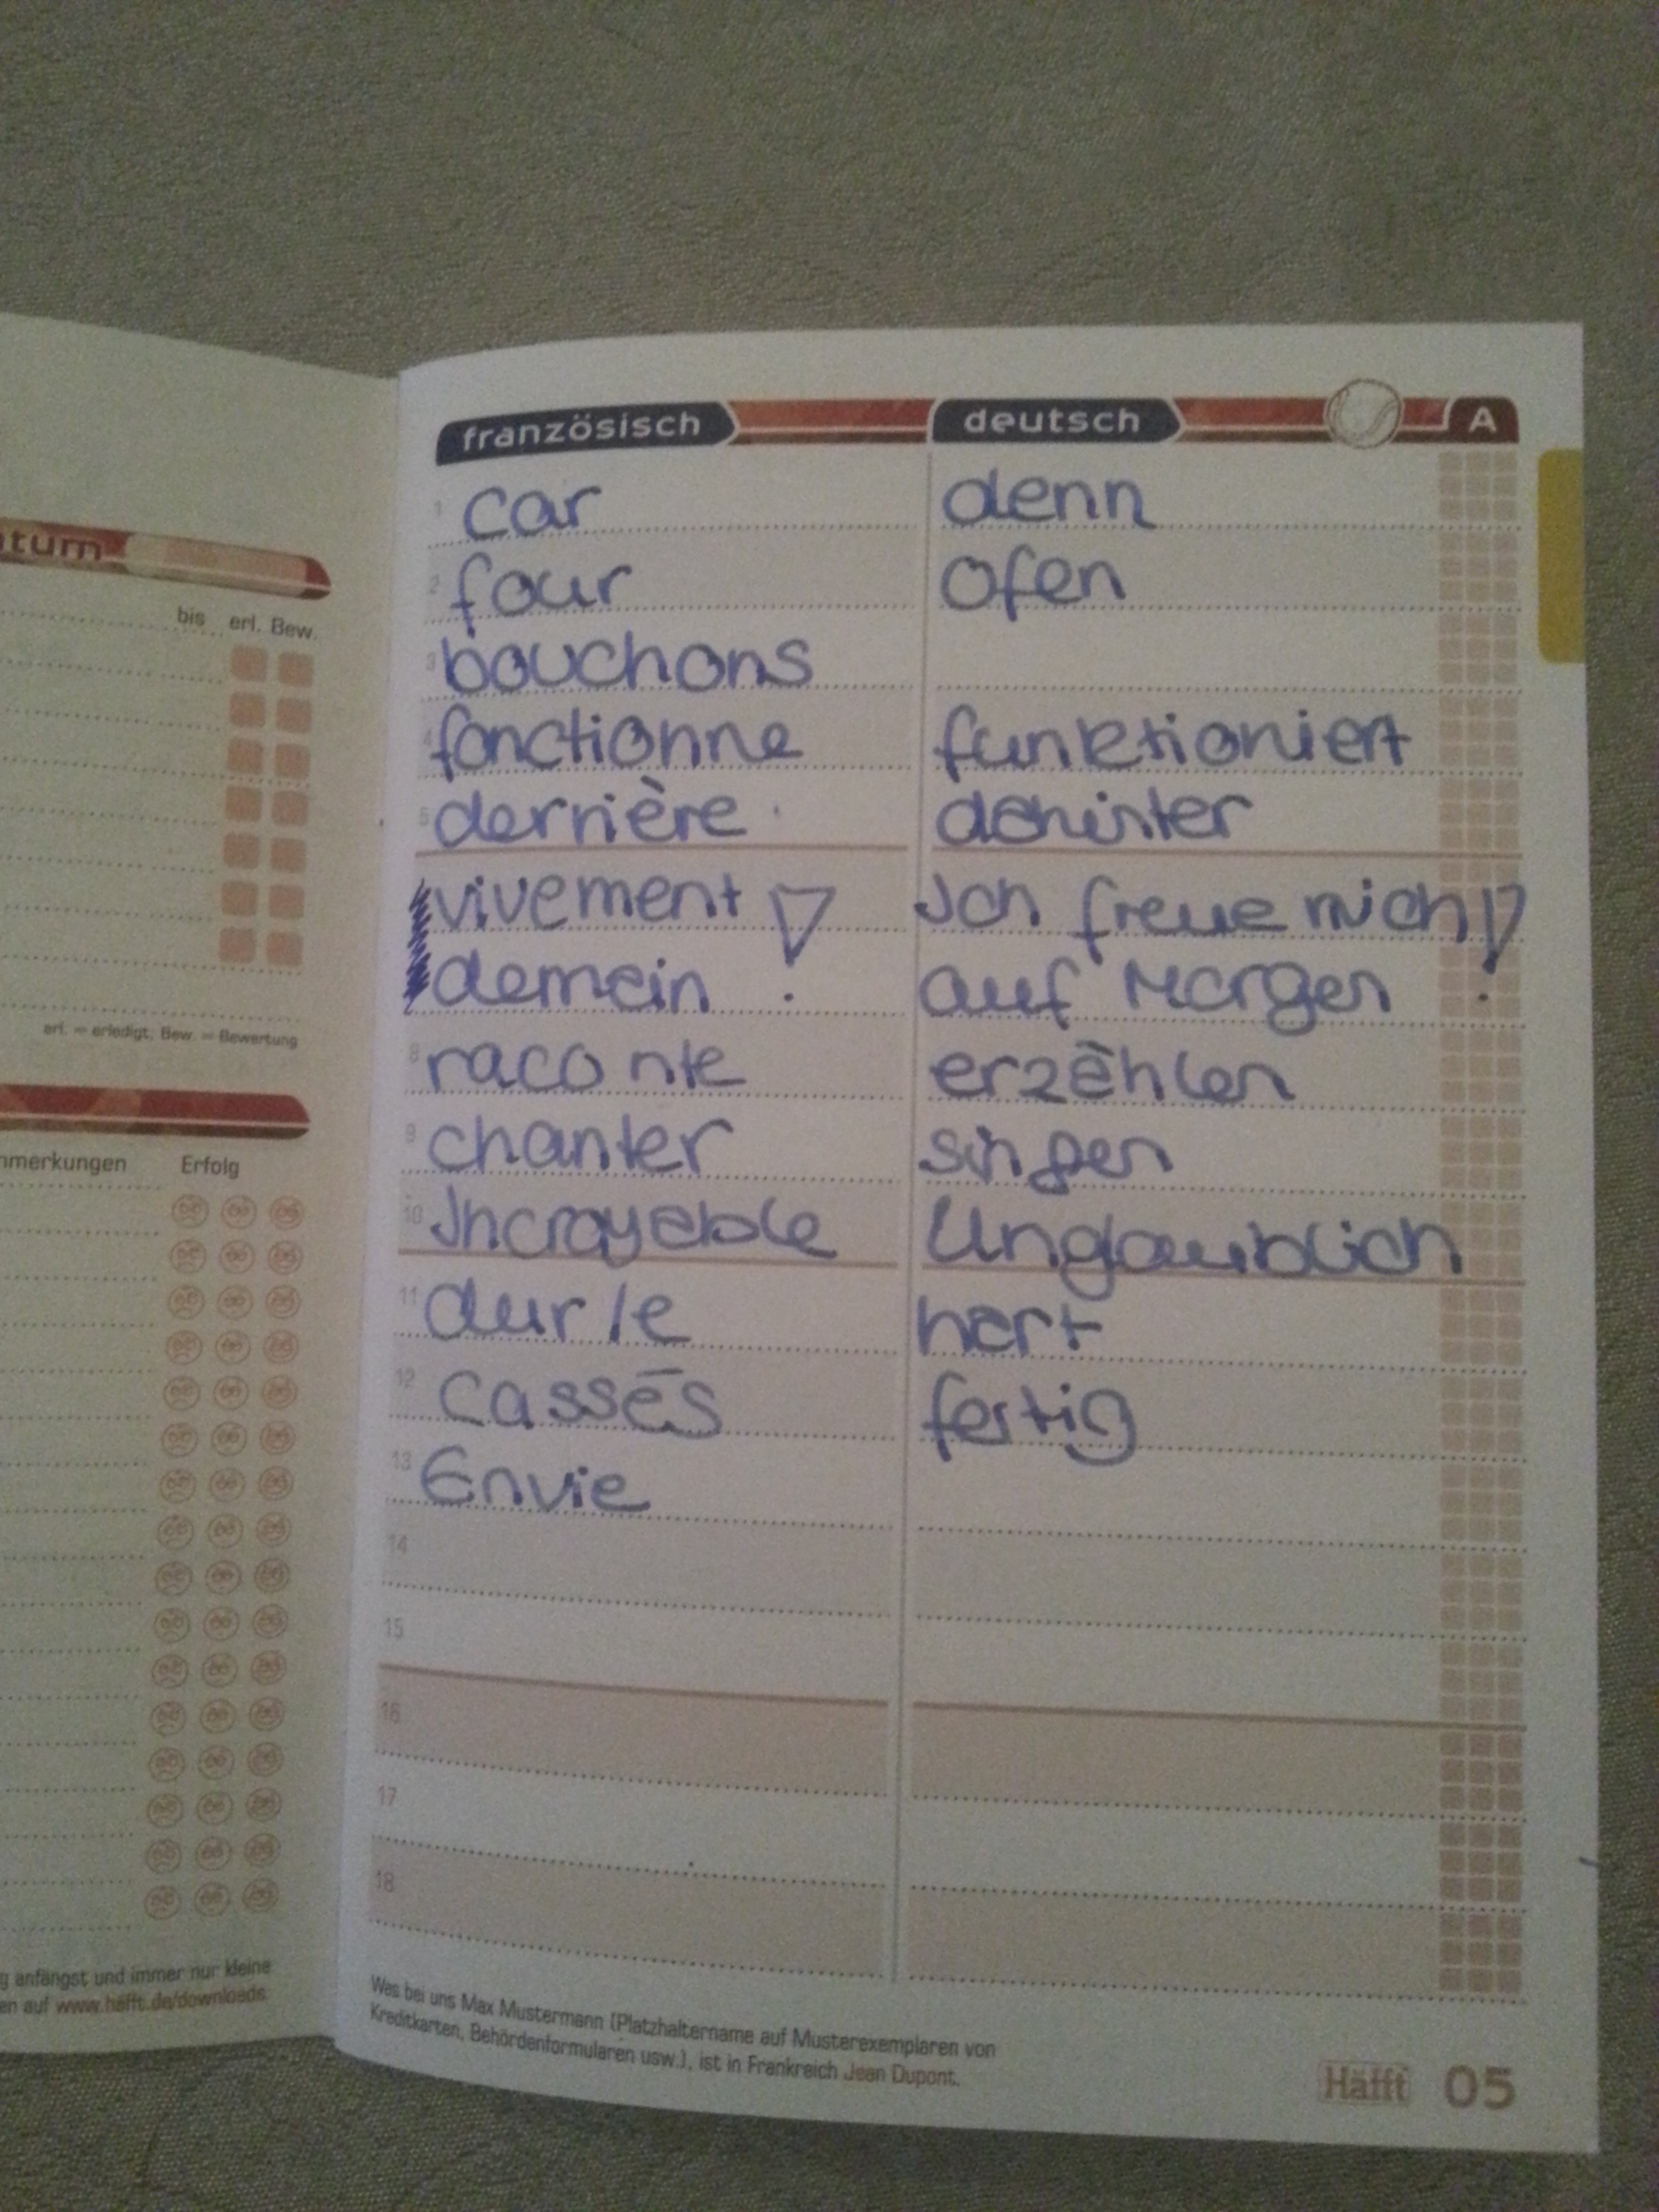 französisch deutsch A
1 car denn
2 four Ofen
3 bouchons
4 fonctionne funktioniert
5 derrière dahinter
vivement Ich freue mich !
demain ! auf Morgen !
8 raconte erzählen
9 chanter singen
10 Incroyable Unglaublich
11 dur/e hart
12 cassés fertig
13 Envie
14
15
16
17
18
Was bei uns Max Mustermann (Platzhaltername auf Musterexemplaren von
Kreditkarten, Behördenformularen usw.), ist in Frankreich Jean Dupont.
Häfft 05
tum
bis erl. Bew.
erl. = erledigt, Bew. = Bewertung
nmerkungen Erfolg
g anfängst und immer nur kleine
en auf www.häfft.de/downloads